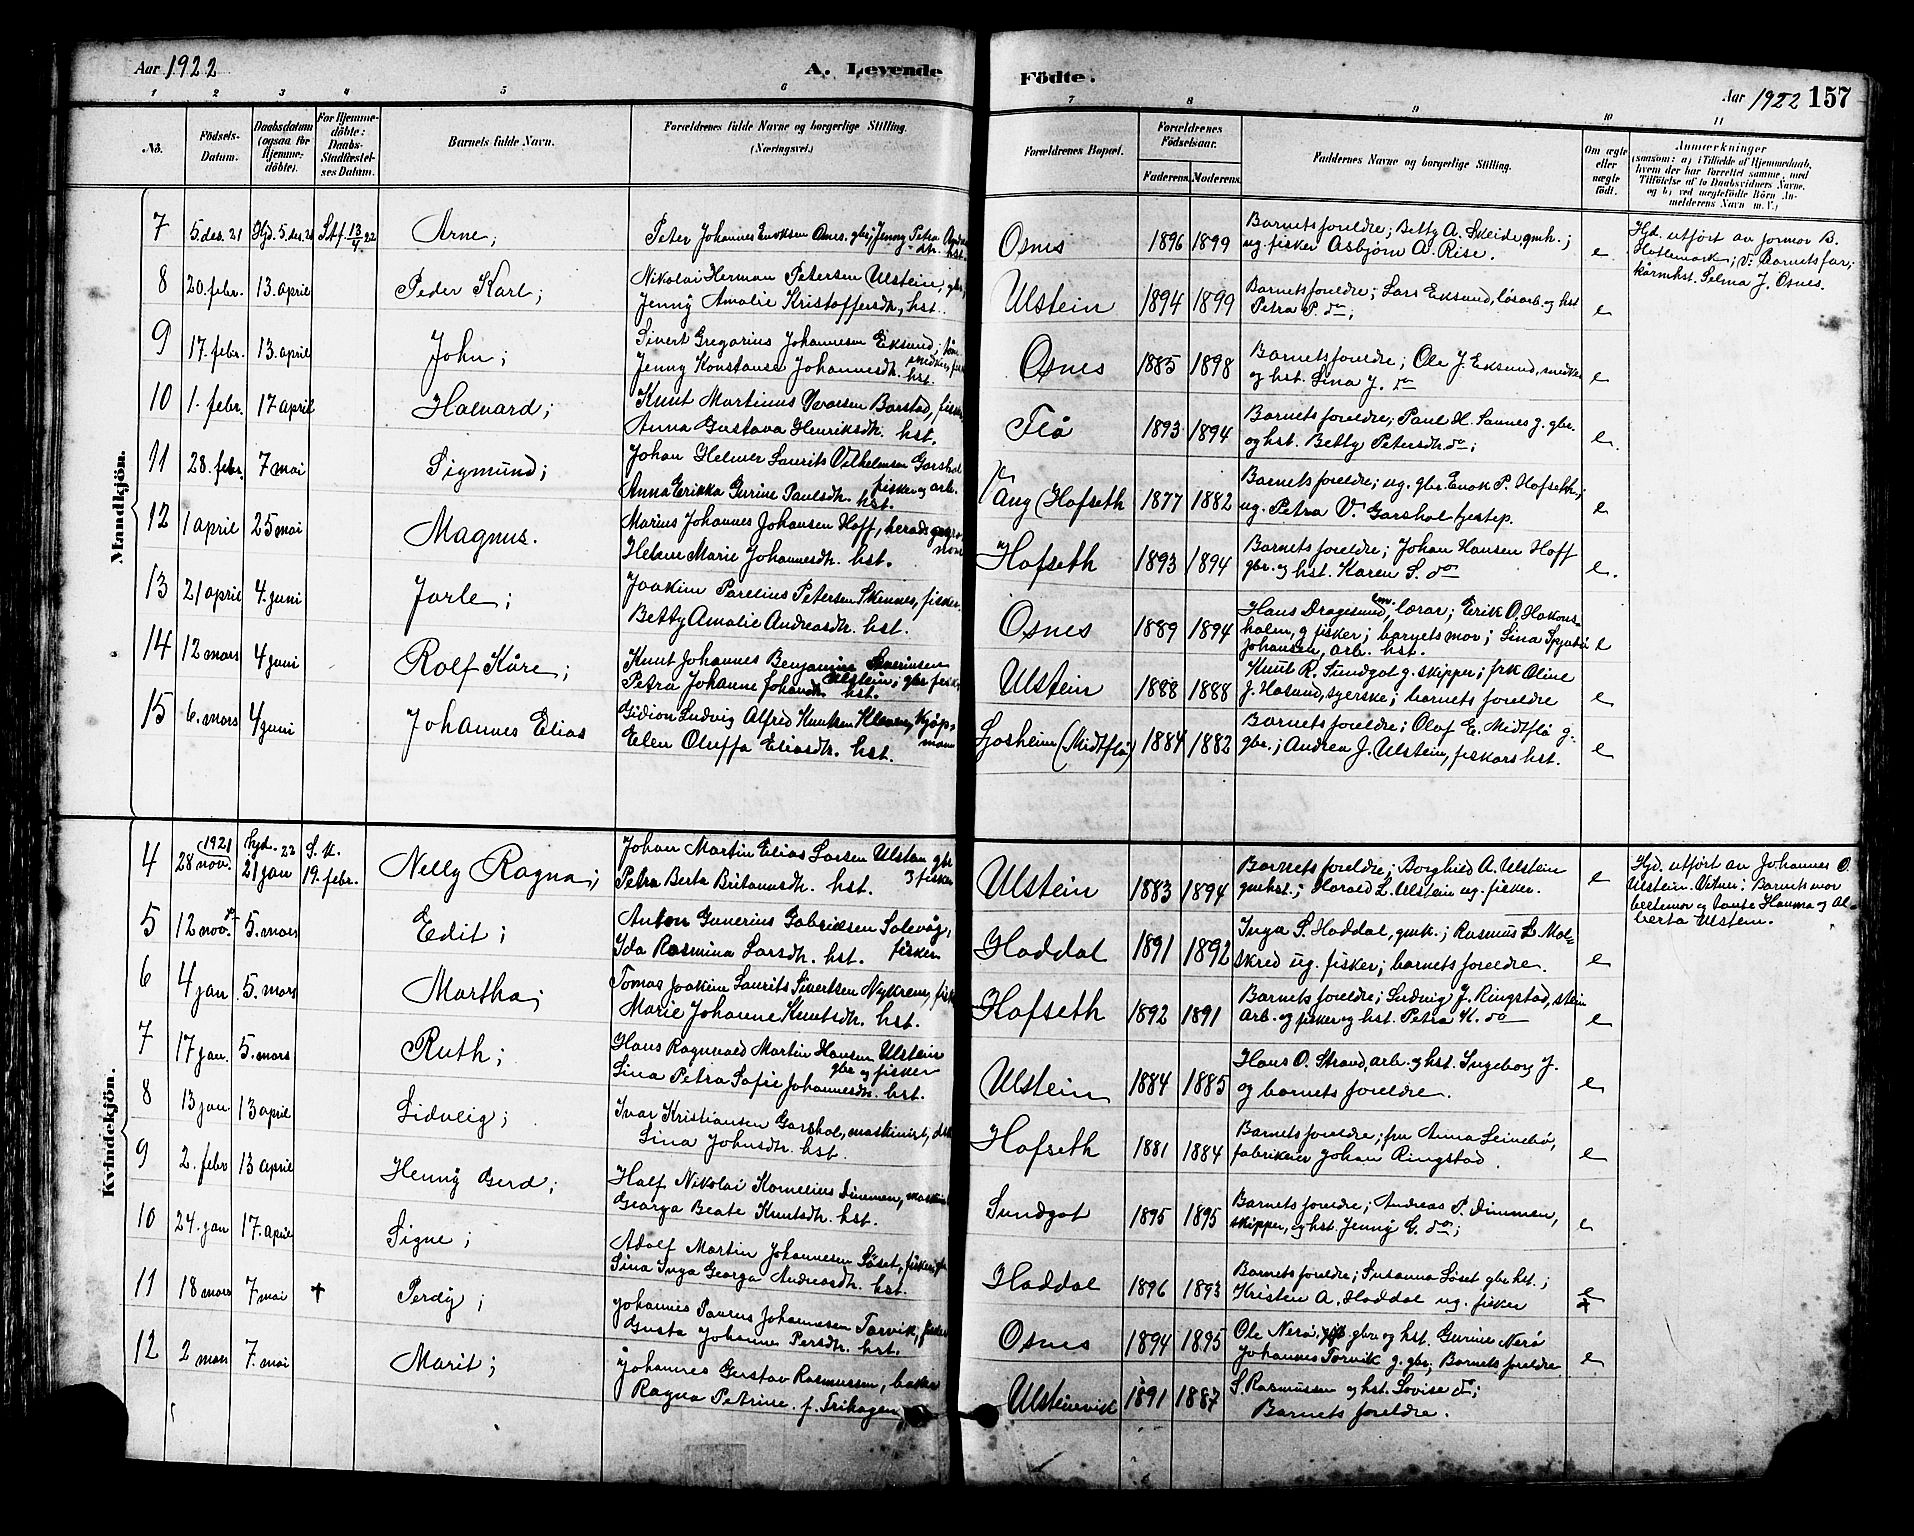 Aar 1922
A. Levende
Födte.
Aar 1922 157
1 2 3 4 5 6 7 8 9 10 11
No.
Födsels-
Datum.
Daabsdatum
(ogsaa för
Hjemme-
döbte).
For Hjemme-
döbte:
Daabs-
Stadfæstel-
ses Datum.
Barnets fulde Navn.
Forældrenes fulde Navne og borgerlige Stilling.
(Næringsvei.)
Forældrenes Bopæl.
Forældrenes
Födselsaar.
Faderens. Moderens.
Faddernes Navne og borgerlige Stilling.
Om ægte
eller
uægte
født.
Anmærkninger
(saasom: a) i Tilfælde af Hjemmedaab,
hvem der har forrettet samme, med
Tilföielse af to Daabsvidners Navne,
og b) ved uægtefødte Börn An-
melderens Navn m. V.)
Mandkjön.
7 5. des. 21 Hjd. 5. des. 21 Stf. 13/4 22 Arne; Peter Johannes Enoksen Osnes. gbr; Jenny Petra
hst.
Osnes 1896 1899 Barnets foreldre; Betty A. Skeide gmh.;
ug. fisker Asbjørn A. Rise. e.
Hd. utført av jormor B.
Hatlemark; V: Barnets far;
kårmhst. Selma J. Osnes.
8 20. febr. 13. april Peder Karl; Nikolai Herman Petersen Ulstein; gbr;
Jenny Amalie Kristoffersdtr., hst.
Ulstein 1894 1899 Barnets foreldre; Lars Eksund, løsarb. og hst
Petra P. do; e
9 17. febr. 13. april John; Sivert Gregorius Johannesen Eksund;
Jenny Konstanse Johannesdtr. hst.
Osnes 1885 1898 Barnets foreldre; Ole J. Eksund, snedker
og hst. Lina J. do e
10 1. febr. 17 april Halvard; Knut Martinus Ivarsen Barstad, fisker,
Anna Gustava Henriksdtr. hst.
Flø 1893 1894 Barnets foreldre; Paul H. Sannes g. gbr.
og hst. Betty Petersdtr. do; e.
11 28. febr. 7 mai Sigmund; Johan Helmer Laurits Vilhelmsen Garshol
fisker og arb.
Anna Erikka Gurine Paulsdtr. hst.
Vang (Hofseth 1877 1882 Barnets foreldre; ug. gbr. Enok P. Hofseth;
ug. Petra V. Garshol tjestep. e
12 1 april 25 mai Magnus. Marius Johannes Johansen Hoff, herads
Helene Marie Johannesdtr. hst.
Hofseth 1893 1894 Barnets foreldre; Johan Hansen Hoff
gbr. og hst. Karen S. do e.
13 21 april 4. juni Jarle; Joakim Parelius Petersen Skeanes, fisker.
Betty Amalie Andreasdtr. hst.
Osnes 1889 1894 Hans Dragesund em. lærar; Erik O. Hakons-
holm, g fisker; barnets mor; Lina
Johansen, arb. hst. e
14 12 mars 4 juni Rolf Kåre; Knut Johannes Benjamin Severinsen
Ulstein; gbr fisk,
Petra Johanne Johansdtr. hst.
Ulstein 1888 1888 Knut R. Sundgot g. skipper; frk Oline
J. Hasund, syerske; barnets foreldre e
15 6. mars 4 juni Johannes Elias Gidion Ludvig Alfred Knutsen Kleven, kjøp-
mann
Elen Oluffa Eliasdtr. hst.
Ljosheim (Midtflø) 1884 1882 Barnets foreldre; Olaf E. Midtflø g.
gbr.; Andrea J. Ulstein, fiskars hst. e
Kvindekjön.
4 1921 28 nov. Hjd. 22 21 jan S. K. 19. febr. Nelly Ragna; Johan Martin Elias Larsen Ulstein gbr
Petra Berta Britanusdtr. hst. fisker
Ulstein 1883 1894 Barnets foreldre; Borghild A. Ulstein
gmhst.; Harald L. Ulstein ug. fisker. e
Hjd. utført av Johannes O.
Ulstein. Vitner; Barnets mor
bestemor og tante Hanna og Al-
berta Ulstein.
5 12 nov. 5. mars Edit; Anton Gunerius Gabrielsen Solevåg,
Ida Rasmina Larsdtr. hst. fisker
Haddal 1891 1892 Inga S. Haddal, gmk.; Rasmus L. Mol-
skred ug. fisker; barnets foreldre. e
6 4 jan 5. mars Martha; Tomas Joakim Laurits Sivertsen Nykrem, fisk
Marie Johanne Knutsdtr. hst.
Hofseth 1892 1891 Barnets foreldre; Ludvig J. Ringstad, sten
arb. og fisker og hst. Petra K. do e
7 17 jan. 5. mars Ruth; Hans Ragnvald Martin Hansen Ulstein
gbr og fisker
Lina Petra Sofie Johannesdtr. hst.
Ulstein 1884 1885 Hans O. Strand, arb. og hst. Ingeborg J.
og barnets foreldre. e
8 13 jan 13 april Lidveig; Ivar Kristiansen Garshol, maskinist,
Lina Johnsdtr. hst.
Hofseth 1881 1884 Barnets foreldre; fru Anna Leinebø,
fabrikeier Johan Ringstad. e
9 2. febr 13 april Henny Gerd; Half Nikolai Kornelius Dimmen, maskin
Georga Beate Knutsdtr. hst.
Sundgot 1895 1895 Barnets foreldre; Andreas P. Dimmen,
skipper, og hst. Jenny C. do; e
10 24. jan 17. april Signe; Adolf Martin Johannesen Løset,
Lina Inga Georga Andreasdtr. hst.
Haddal 1896 1893 Barnets foreldre; Susanna Løset gbr hst.;
Kristen A. Haddal ug. fisker e
11 18 mars 7 mai † Perdy; Johannes Paareus Johannesen Torvik, fisker
Gusta Johanne Persdtr. hst.
Osnes 1894 1895 Ole Nerø, gbr og hst. Gurine Nerø
Johannes Torvik g. gbr; Barnets foreldre e
12 2 mars 7. mai Marit; Johannes Gustav Rasmussen, baker
Ragna Petrine f. Frihagen
Ulsteinvik 1891 1887 S. Rasmussen og hst. Lovise do;
Barnets foreldre.